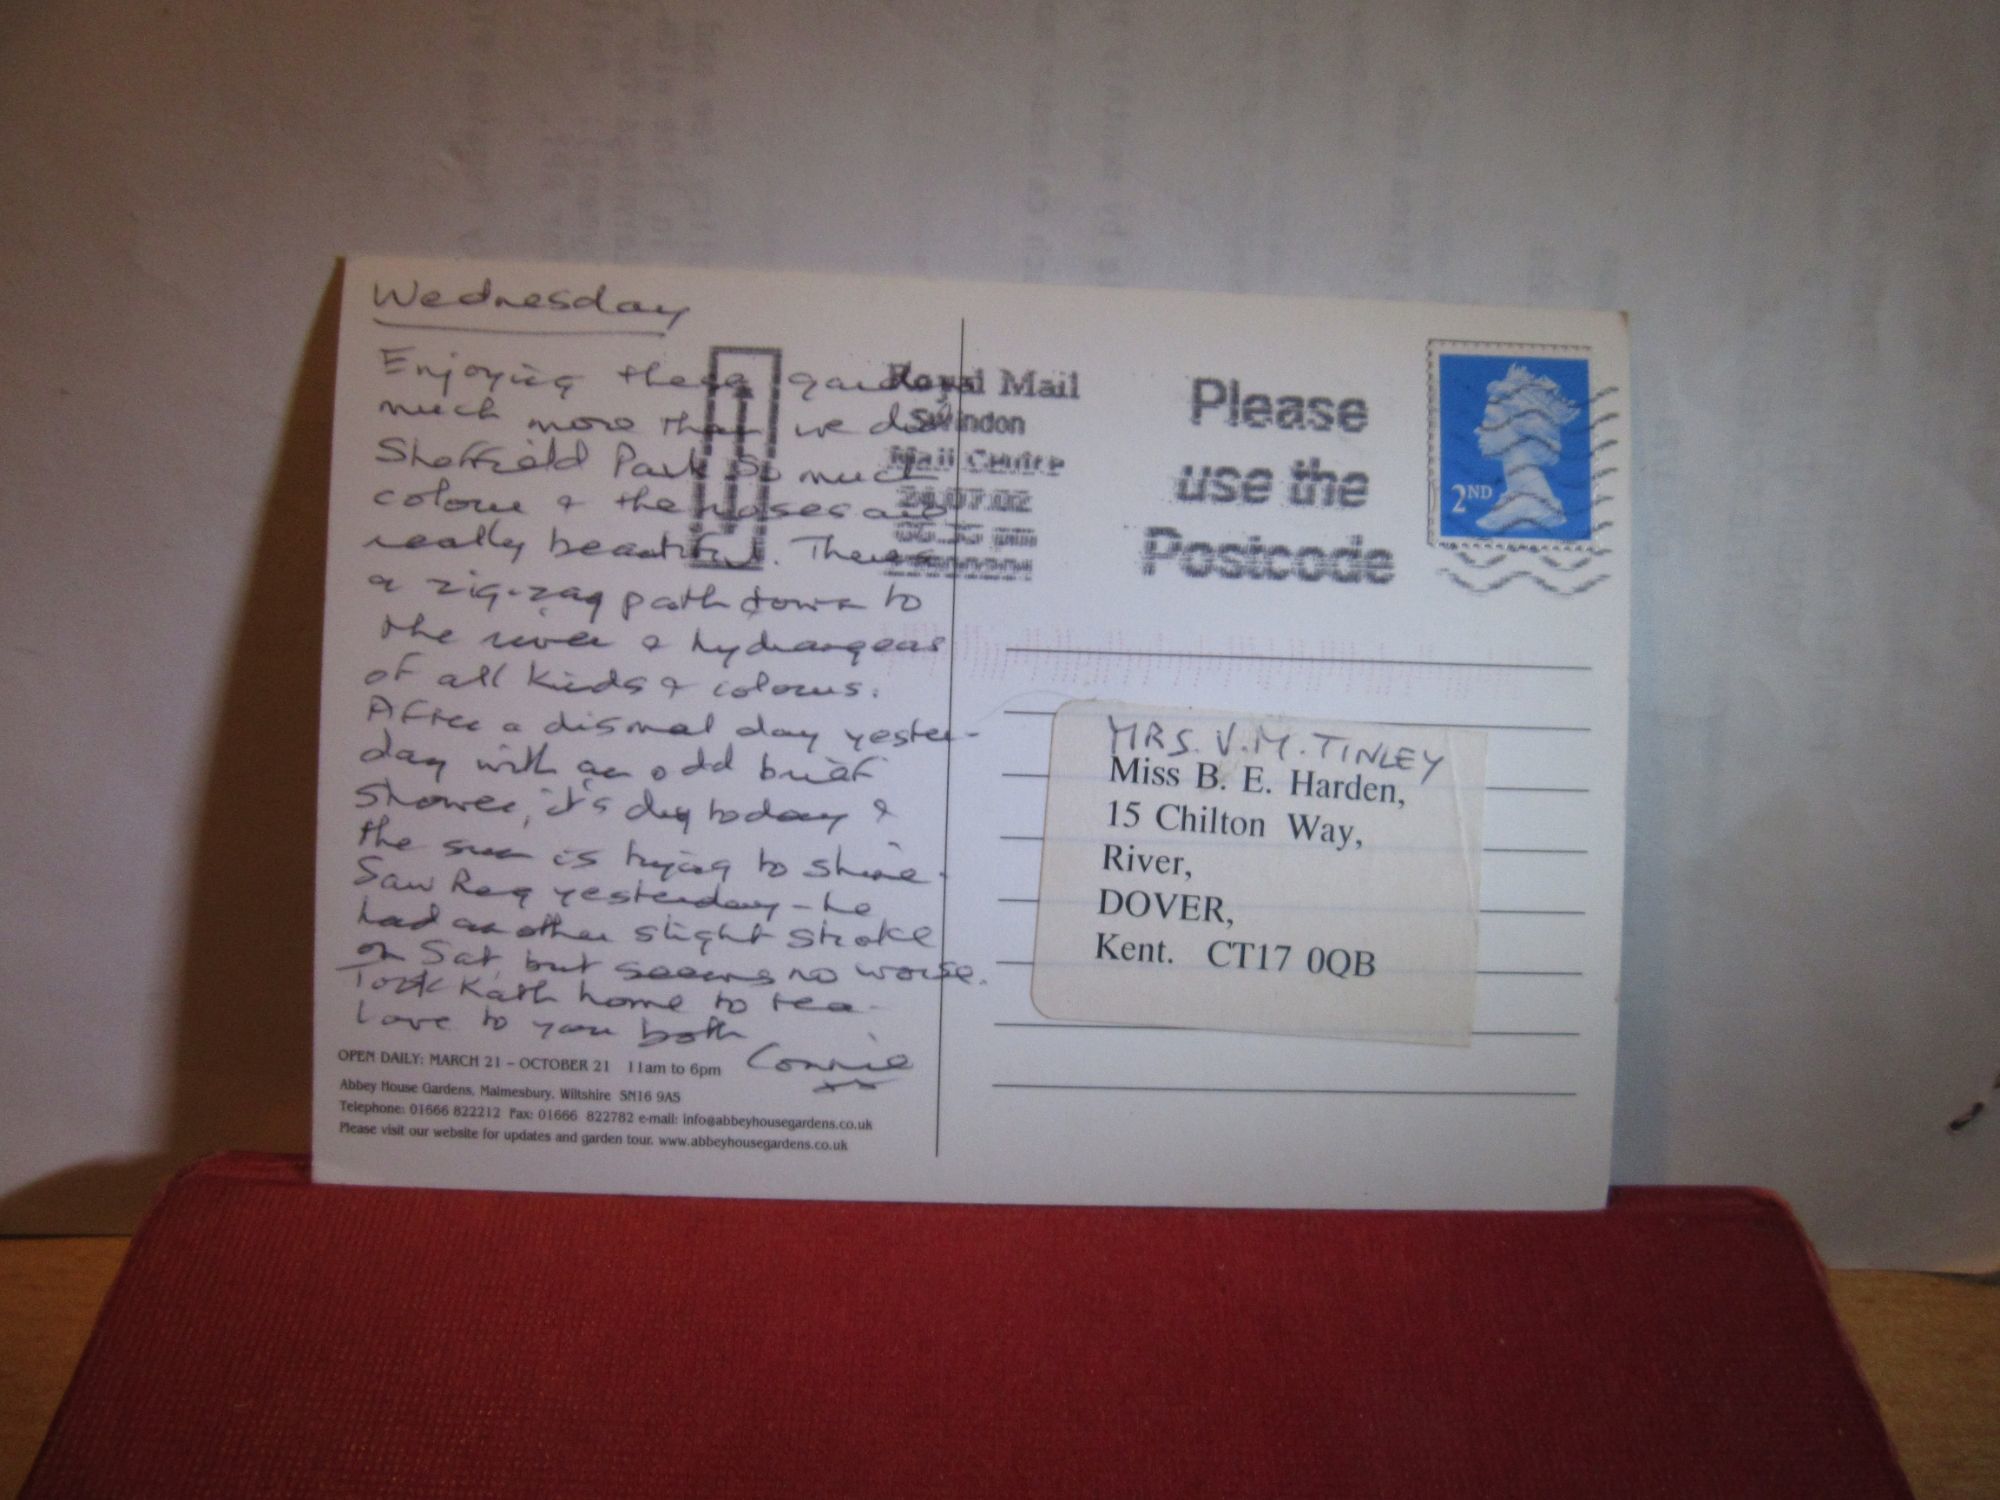 Wednesday
Enjoying these gardens
much more than we did
Sheffield Park. So much
colour & the roses are
really beautiful. There's
a zig-zag path down to
the river & hydrangeas
of all kinds & colours.
After a dismal day yester-
day with an odd brief
shower, it's dry today &
the sun is trying to shine.
Saw Reg yesterday - he
had another slight stroke
on Sat, but seems no worse.
Took Kath home to tea.
Love to you both
Connie
xx
OPEN DAILY: MARCH 21 – OCTOBER 21 11am to 6pm
Abbey House Gardens, Malmesbury, Wiltshire SN16 9AS
Telephone: 01666 822212 Fax: 01666 822782 e-mail: info@abbeyhousegardens.co.uk
Please visit our website for updates and garden tour. www.abbeyhousegardens.co.uk
Royal Mail
Swindon
Mail Centre
24.07.02
06.35 pm
Please
use the
Postcode
2ND
MRS. V. M. TINLEY
Miss B. E. Harden,
15 Chilton Way,
River,
DOVER,
Kent. CT17 0QB